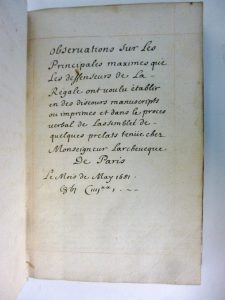 Observations Sur Les
Principales maximes que
Les deffenseurs de La
Régale ont voulu établir
en des discours manuscripts
ou imprimez et dans le procés
verbal de Lassemblée de
quelques prelats tenüe chez
Monseigneur Larcheveque
De Paris
Le Mois de May 1681.